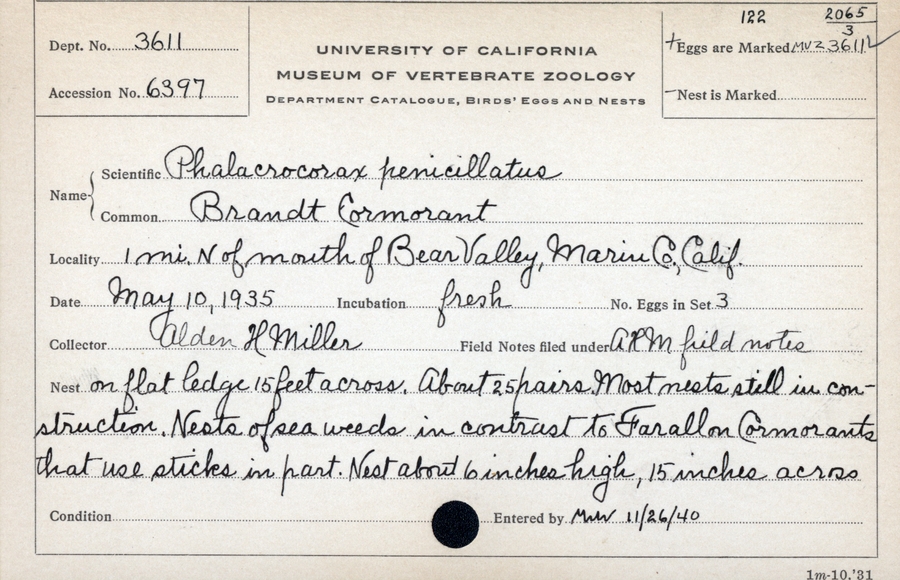 122 2065
3
Dept. No. 3611
UNIVERSITY OF CALIFORNIA
+Eggs are Marked MVZ 3611 ✓
MUSEUM OF VERTEBRATE ZOOLOGY
Accession No. 6397
DEPARTMENT CATALOGUE, BIRDS' EGGS AND NESTS
-Nest is Marked
Name { Scientific Phalacrocorax penicillatus
Common Brandt Cormorant
Locality 1 mi. N of mouth of Bear Valley, Marin Co., Calif.
Date May 10, 1935 Incubation fresh No. Eggs in Set 3
Collector Alden H Miller Field Notes filed under AHM field notes
Nest on flat ledge 15 feet across. About 25 pairs. Most nests still in con-
struction. Nests of sea weeds in contrast to Farallon Cormorants
that use sticks in part. Nest about 6 inches high, 15 inches across
Condition Entered by 11/26/40
1m-10,'31